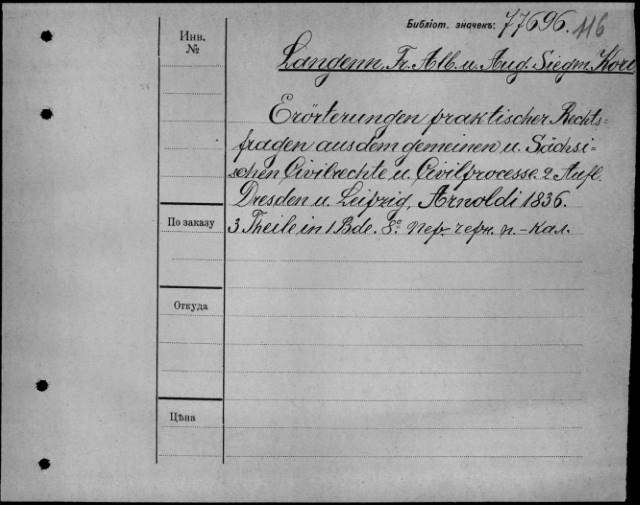 Библіот. значекъ: 77696. 116
Инв.
№
Langenn, Fr. Alb. u. Aug. Siegm. Kori
Erörterungen praktischer Rechts-
fragen aus dem gemeinen u. Sächsi-
schen Civilrechte u. Civilprocesse. 2 Aufl.
Dresden u. Leipzig, Arnoldi 1836.
По заказу
3 Theile in 1 Bde. 8º. Пер. черн. п.-кал.
Откуда
Цѣна